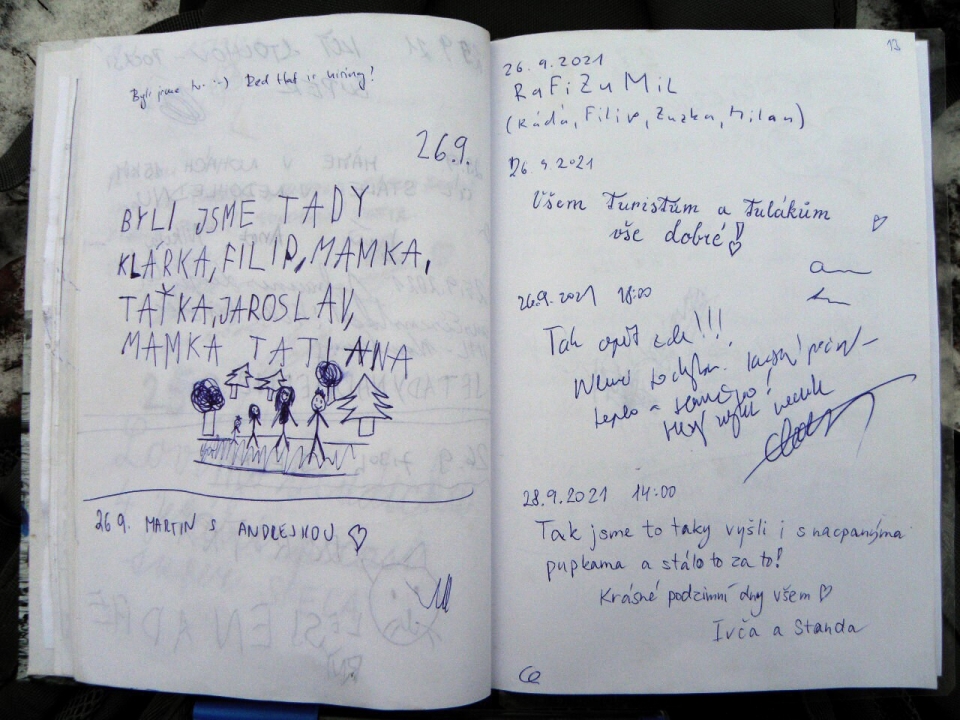 Byli jsme tu :-) Red Hat is hiring!
26.9.
BYLI JSME TADY
KLÁRKA, FILIP, MAMKA,
TAŤKA, JAROSLAV,
MAMKA TATIANA
26.9. MARTIN S ANDREJKOU ♡
13
26.9.2021
RaFiZuMiL
(Ráďa, Filip, Zuzka, Milan)
26.9.2021
Všem turistům a tulákům
vše dobré! ♡
26.9.2021 18:00
Tak opět zde!!!
teplo a
28.9.2021 14:00
Tak jsme to taky vyšli i s nacpanýma
pupkama a stálo to za to!
Krásné podzimní dny všem ♡
Ivča a Standa